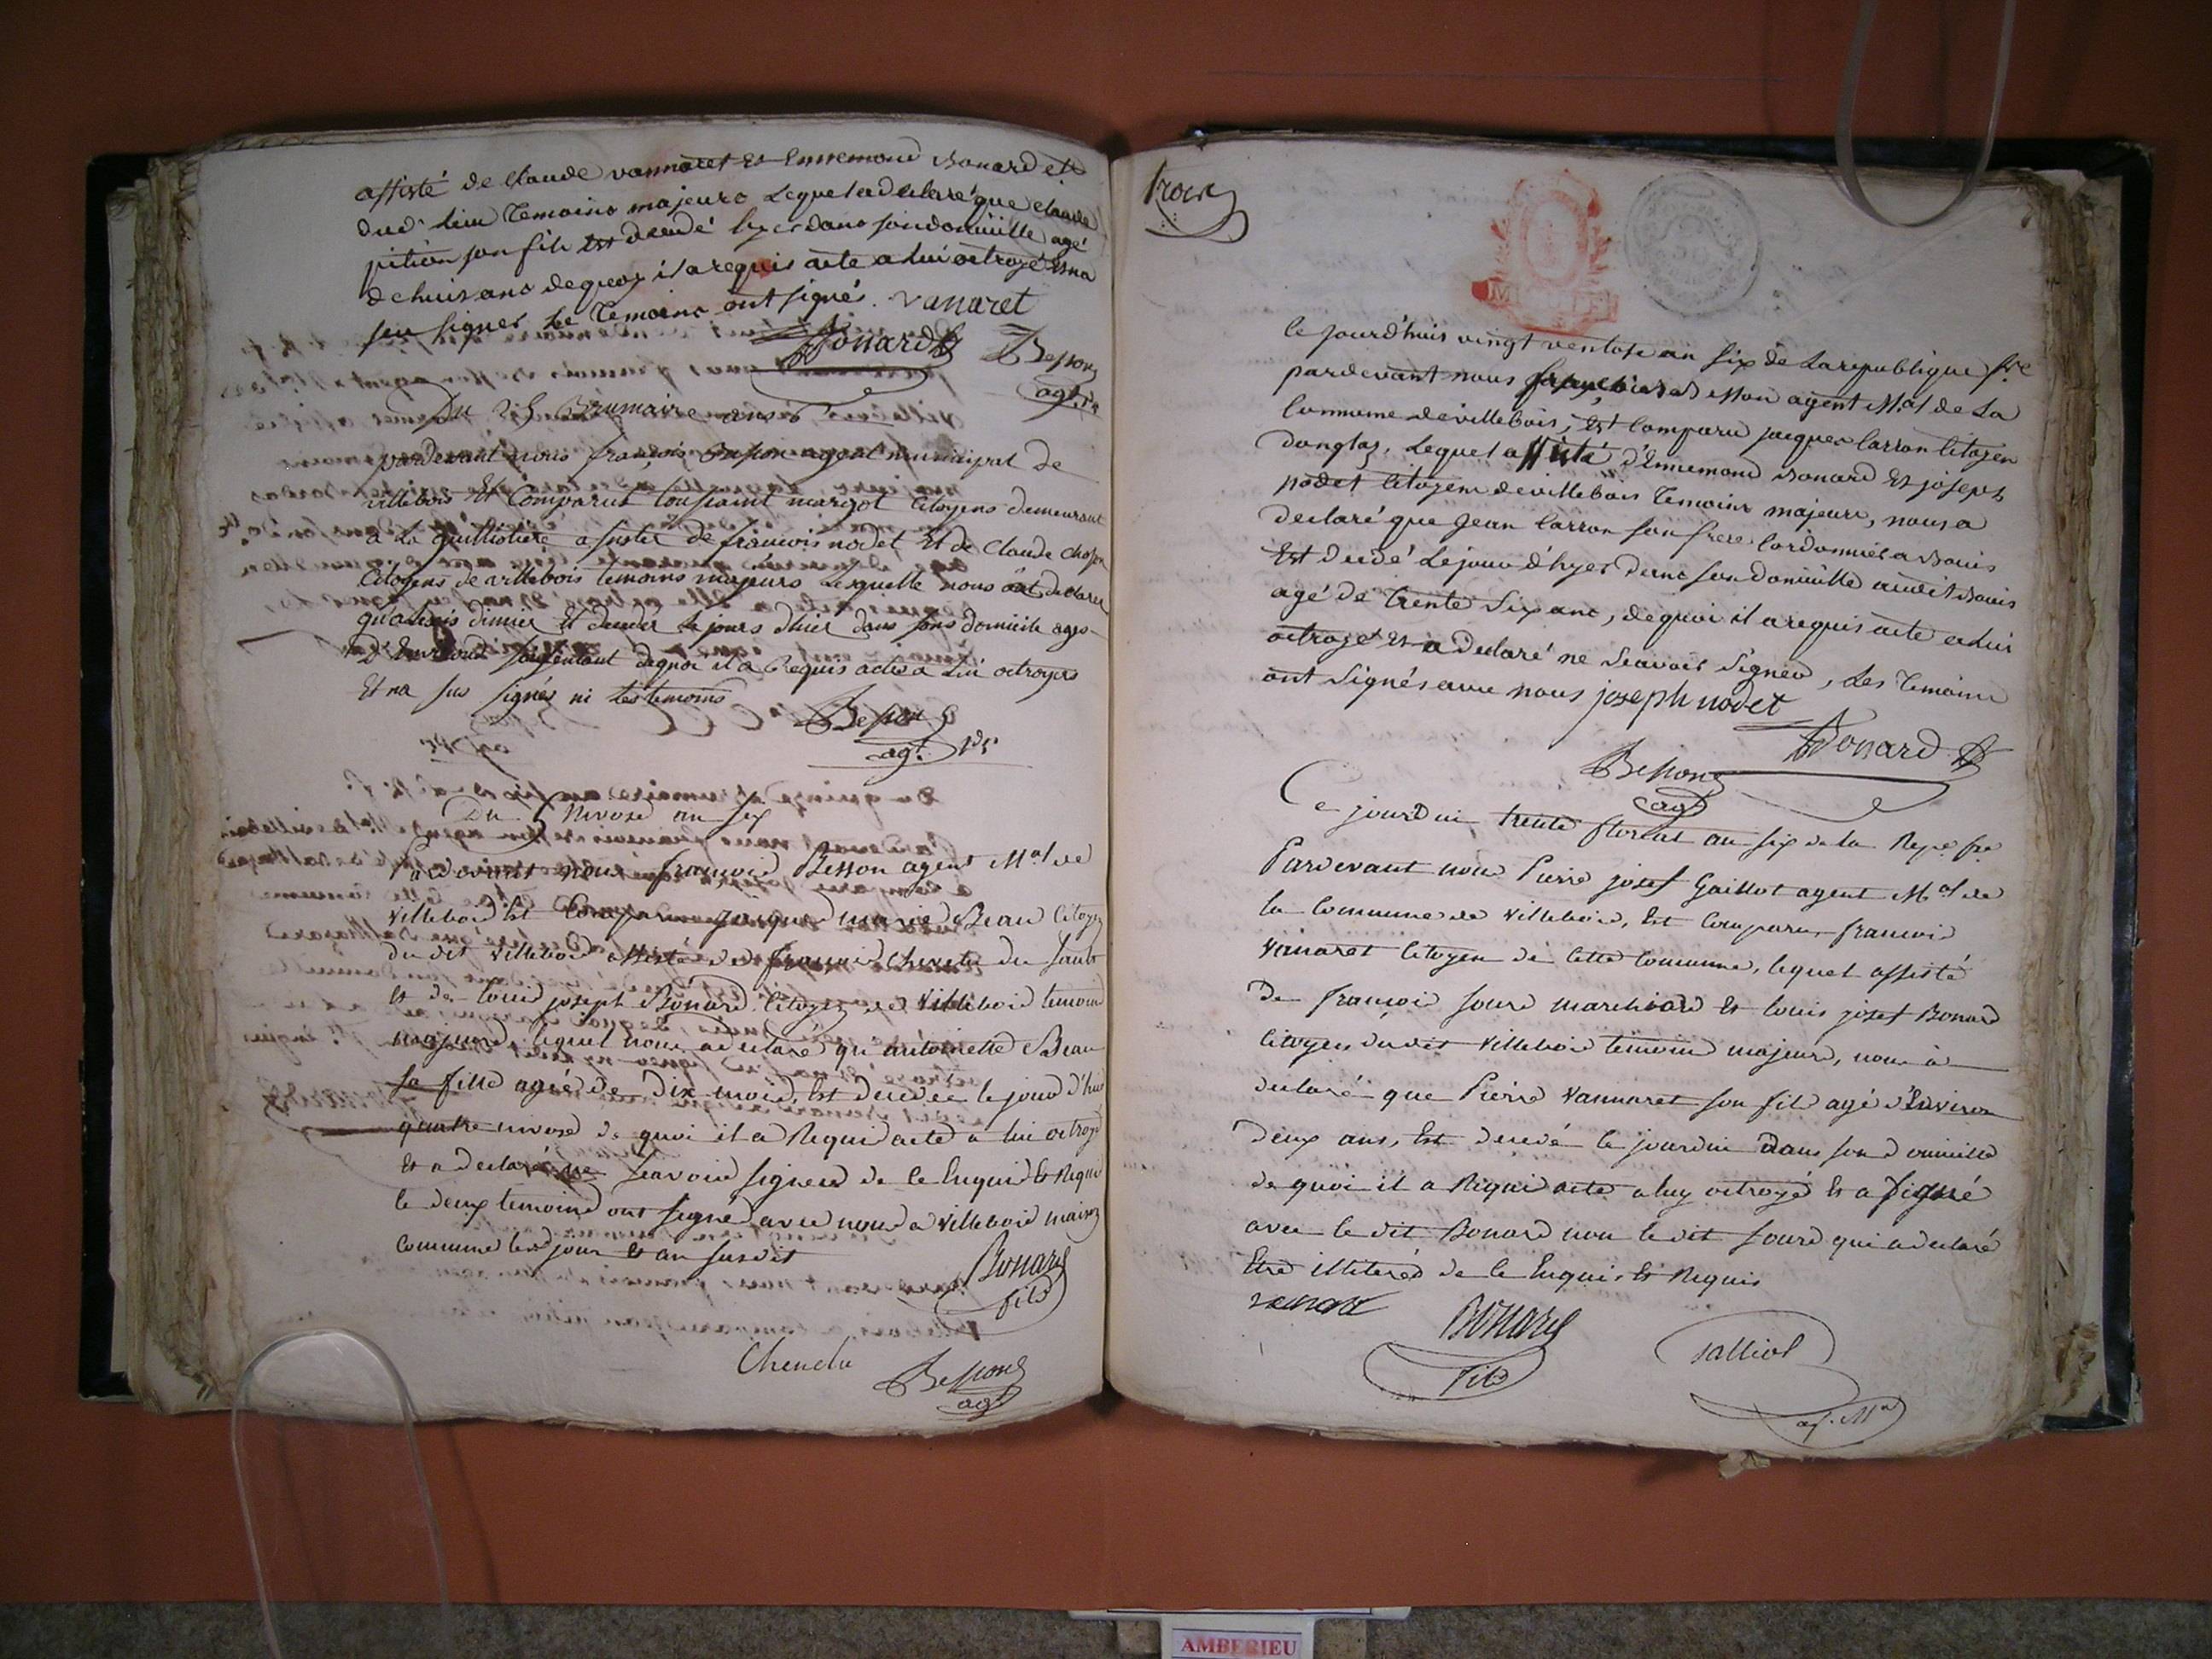 assisté de Claude vannaret Et Ennemond Bonard et
dud. lieu Temoins majeurs Lequel a declaré que claude
pition son fils Est decedé hyer dans son domicille agé
de huit ans de quoy il a requis acte a lui octroyé Et na
seu signer Le Temoins ont signés. vanaret
Bonard
Besson
agt.
Du 25 Brumaire ans 6
pardevant nous françois Besson agent municipal de
villebois Et Comparut toussaint margot Citoyens demeurant
a la guilliotiere assister de francois nodet Et de Claude
Citoyens de villebois temoins majeurs Lesquelle nous ont declarer
dimier Et deceder le jours dhier dans sons domicile ages
D'Environt dequoi il a Requis acte a Lui octroyer
Et na sus signés ni Les temoins
Besson
agt.
Du 5 Nivose an six
Pardevant nous francois Besson agent M.al de
villebois Est Comparu jacque marie Beau Citoyen
du dit villebois assisté de francois du Sault
Et de louis joseph Bonard Citoyen de villebois temoin
majeurs, lequel nous a declaré qu'antoinette Beau
sa fille agée de dix mois, Est decedée le jour d'hui
quatre nivose de quoi il a Requi acte a lui octroyé
Et a declaré ne scavoir signer de ce Enquis Et Requi
le deux temoins ont signé avec nous a villebois maison
commune les jour Et an susdit
Bonard
fils
Besson
agt
trois
Ce jourd'huis vingt ventose an six de La republique fse
pardevant nous françois Besson agent M.al de La
Commune de villebois, Est Comparu jacques Carron Citoyen
, Lequel assisté d'Ennemond Bonard Et joseph
nodet Citoyens de villebois Temoins majeurs, nous a
declaré que Jean Carron son frere Cordonnier a Bouis
Est decedé Le jour d'hyer dans son domicille audit Bouis
agé de trente six ans, de quoi il a requis acte a Lui
octroyé Et a declaré ne Scavoir Signer, Les Temoins
ont Signés avec nous joseph nodet
Bonard
Besson
agt
Ce jourdui trente floreal an six de la Repe. fse.
Pardevant nous Pierre josef Galliot agent M.al de
la Commune de villebois, Est Comparu francois
Vanaret Citoyen de Cette Commune, lequel assisté
De francois sourd marchand Et louis josef Bonard
Citoyen dudit villebois temoins majeurs, nous à
declaré que Pierre Vannaret son fils agé d'Environ
Deux ans, Est decedé le jourdui Dans son domicille
de quoi il a Requi acte a luy octroyé Et a signé
avec le dit Bonard non le dit sourd qui a declaré
Etre illiteré de ce Enquis Et Requis
vanaret
Bonard
fils
Galliot
ag. M.al
AMBERIEU